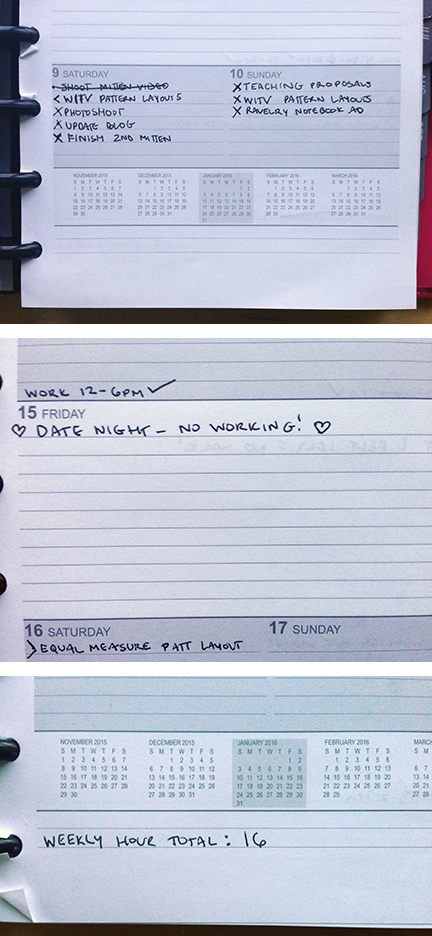 9 SATURDAY
• SHOOT MITTEN VIDEO
< WITV PATTERN LAYOUTS
X PHOTOSHOOT
X UPDATE BLOG
X FINISH 2ND MITTEN
10 SUNDAY
X TEACHING PROPOSALS
X WITV PATTERN LAYOUTS
X RAVELRY NOTEBOOK AD
NOVEMBER 2015 DECEMBER 2015 JANUARY 2016 FEBRUARY 2016 MARCH 2016
S M T W T F S S M T W T F S S M T W T F S S M T W T F S S M T W T F S
1 2 3 4 5 6 7 1 2 3 4 5 1 2 1 2 3 4 5 6 1 2 3 4 5
8 9 10 11 12 13 14 6 7 8 9 10 11 12 3 4 5 6 7 8 9 7 8 9 10 11 12 13 6 7 8 9 10 11 12
15 16 17 18 19 20 21 13 14 15 16 17 18 19 10 11 12 13 14 15 16 14 15 16 17 18 19 20 13 14 15 16 17 18 19
22 23 24 25 26 27 28 20 21 22 23 24 25 26 17 18 19 20 21 22 23 21 22 23 24 25 26 27 20 21 22 23 24 25 26
29 30 27 28 29 30 31 24 25 26 27 28 29 30 28 29 27 28 29 30 31
31
WORK 12-6PM ✓
15 FRIDAY
♡ DATE NIGHT – NO WORKING! ♡
16 SATURDAY
> EQUAL MEASURE PATT LAYOUT
17 SUNDAY
NOVEMBER 2015 DECEMBER 2015 JANUARY 2016 FEBRUARY 2016 MARCH
S M T W T F S S M T W T F S S M T W T F S S M T W T F S S M
1 2 3 4 5 6 7 1 2 3 4 5 1 2 1 2 3 4 5 6
8 9 10 11 12 13 14 6 7 8 9 10 11 12 3 4 5 6 7 8 9 7 8 9 10 11 12 13 6 7
15 16 17 18 19 20 21 13 14 15 16 17 18 19 10 11 12 13 14 15 16 14 15 16 17 18 19 20 13 14
22 23 24 25 26 27 28 20 21 22 23 24 25 26 17 18 19 20 21 22 23 21 22 23 24 25 26 27 20 21
29 30 27 28 29 30 31 24 25 26 27 28 29 30 28 29 27 28
31
WEEKLY HOUR TOTAL: 16